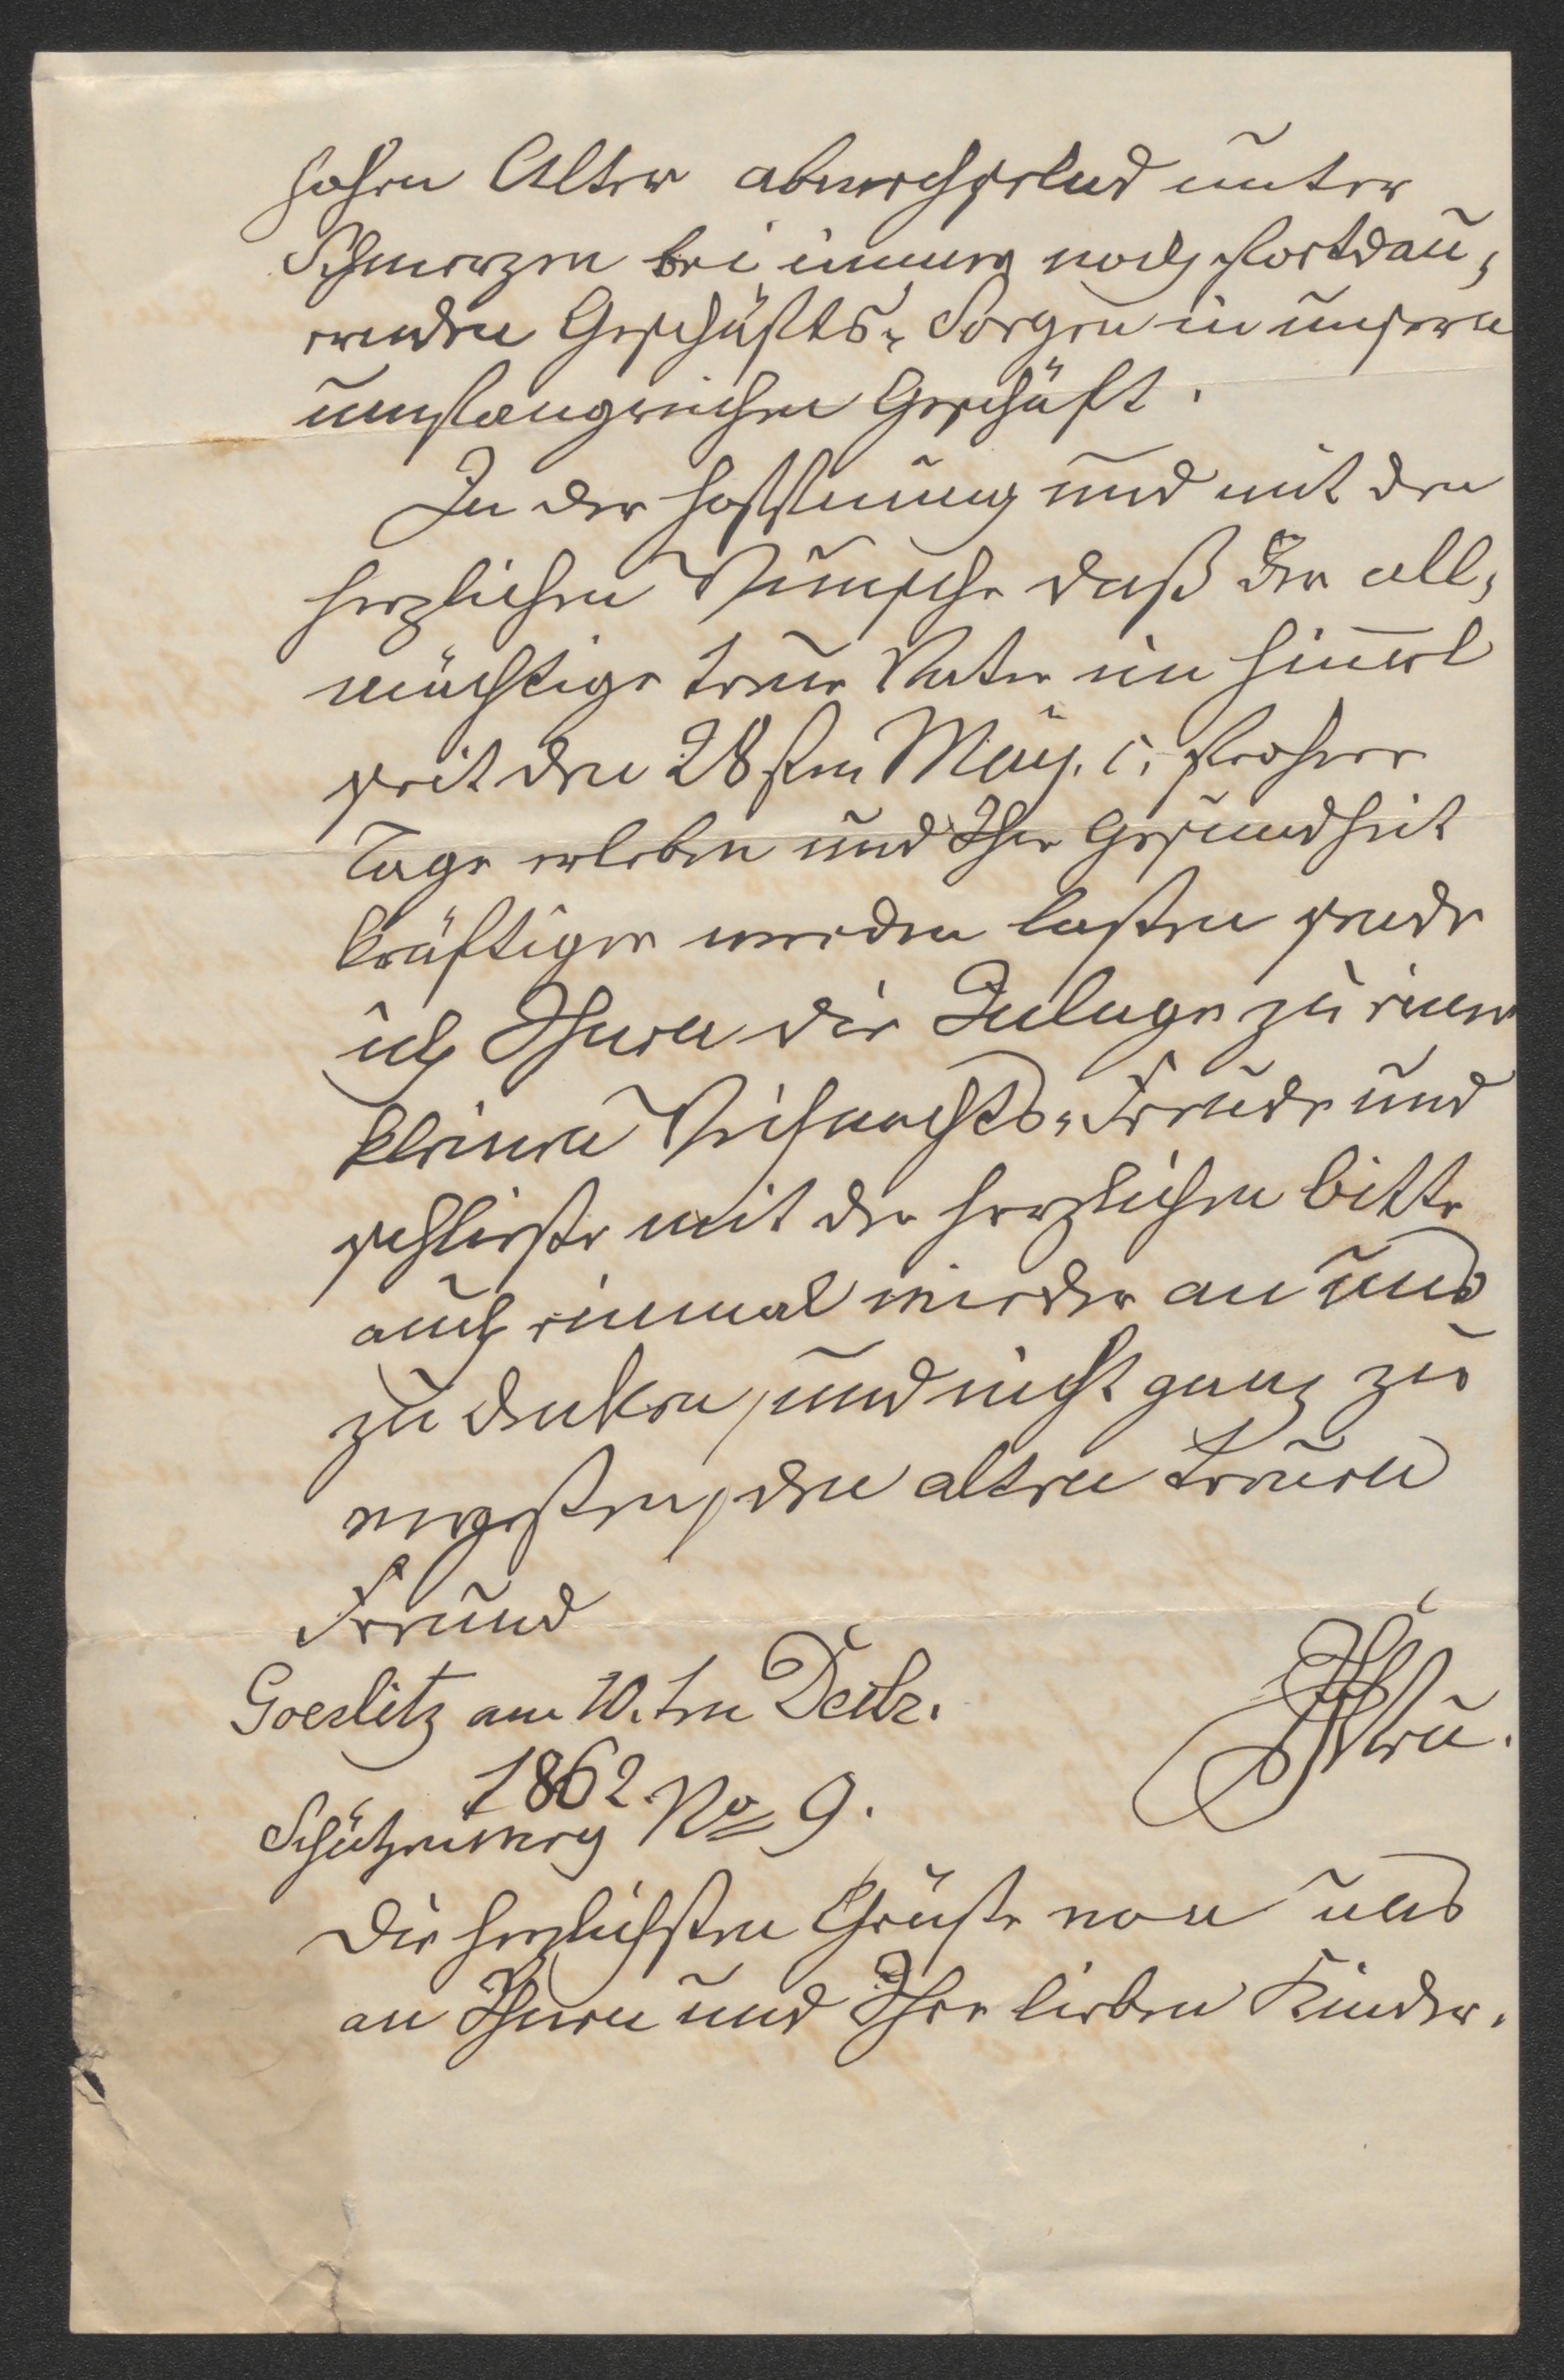 hohen Alter abwechselnd unter
Schmerzen bei immer noch fortdau¬
renden Geschäfts- Sorgen in unsern
umfangreichen Geschäft.
In der Hoffnung und mit den
herzlichen Wunsche daß der all¬
mächtige treue Vater im Himmel
seit den 28sten May. c. frohere
Tage erleben und Ihre Gesundheit
kräftiger werden lassen sende
ich Ihnen die Inlage zu einer
kleinen Weihnachts-Freude und
schließe mit der herzlichen bitte
auch einmal wieder an uns
zu denken, und nicht ganz zu
vergessen, den alten treuen
Freund
Goerlitz am 10.ten Decbr.
1862.
Schützenweg No 9.
Die herzlichsten Grüße von uns
an Ihnen und Ihre lieben Kinder.